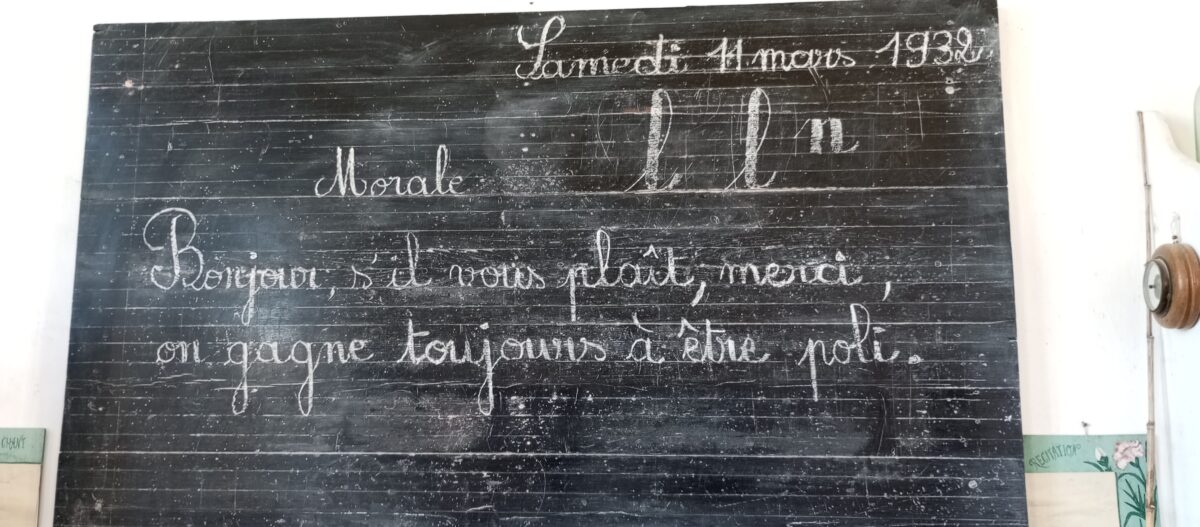 Samedi 11 mars 1932
l l n
Morale
Bonjour, s'il vous plaît, merci,
on gagne toujours à être poli.
CHANT
RECITATION